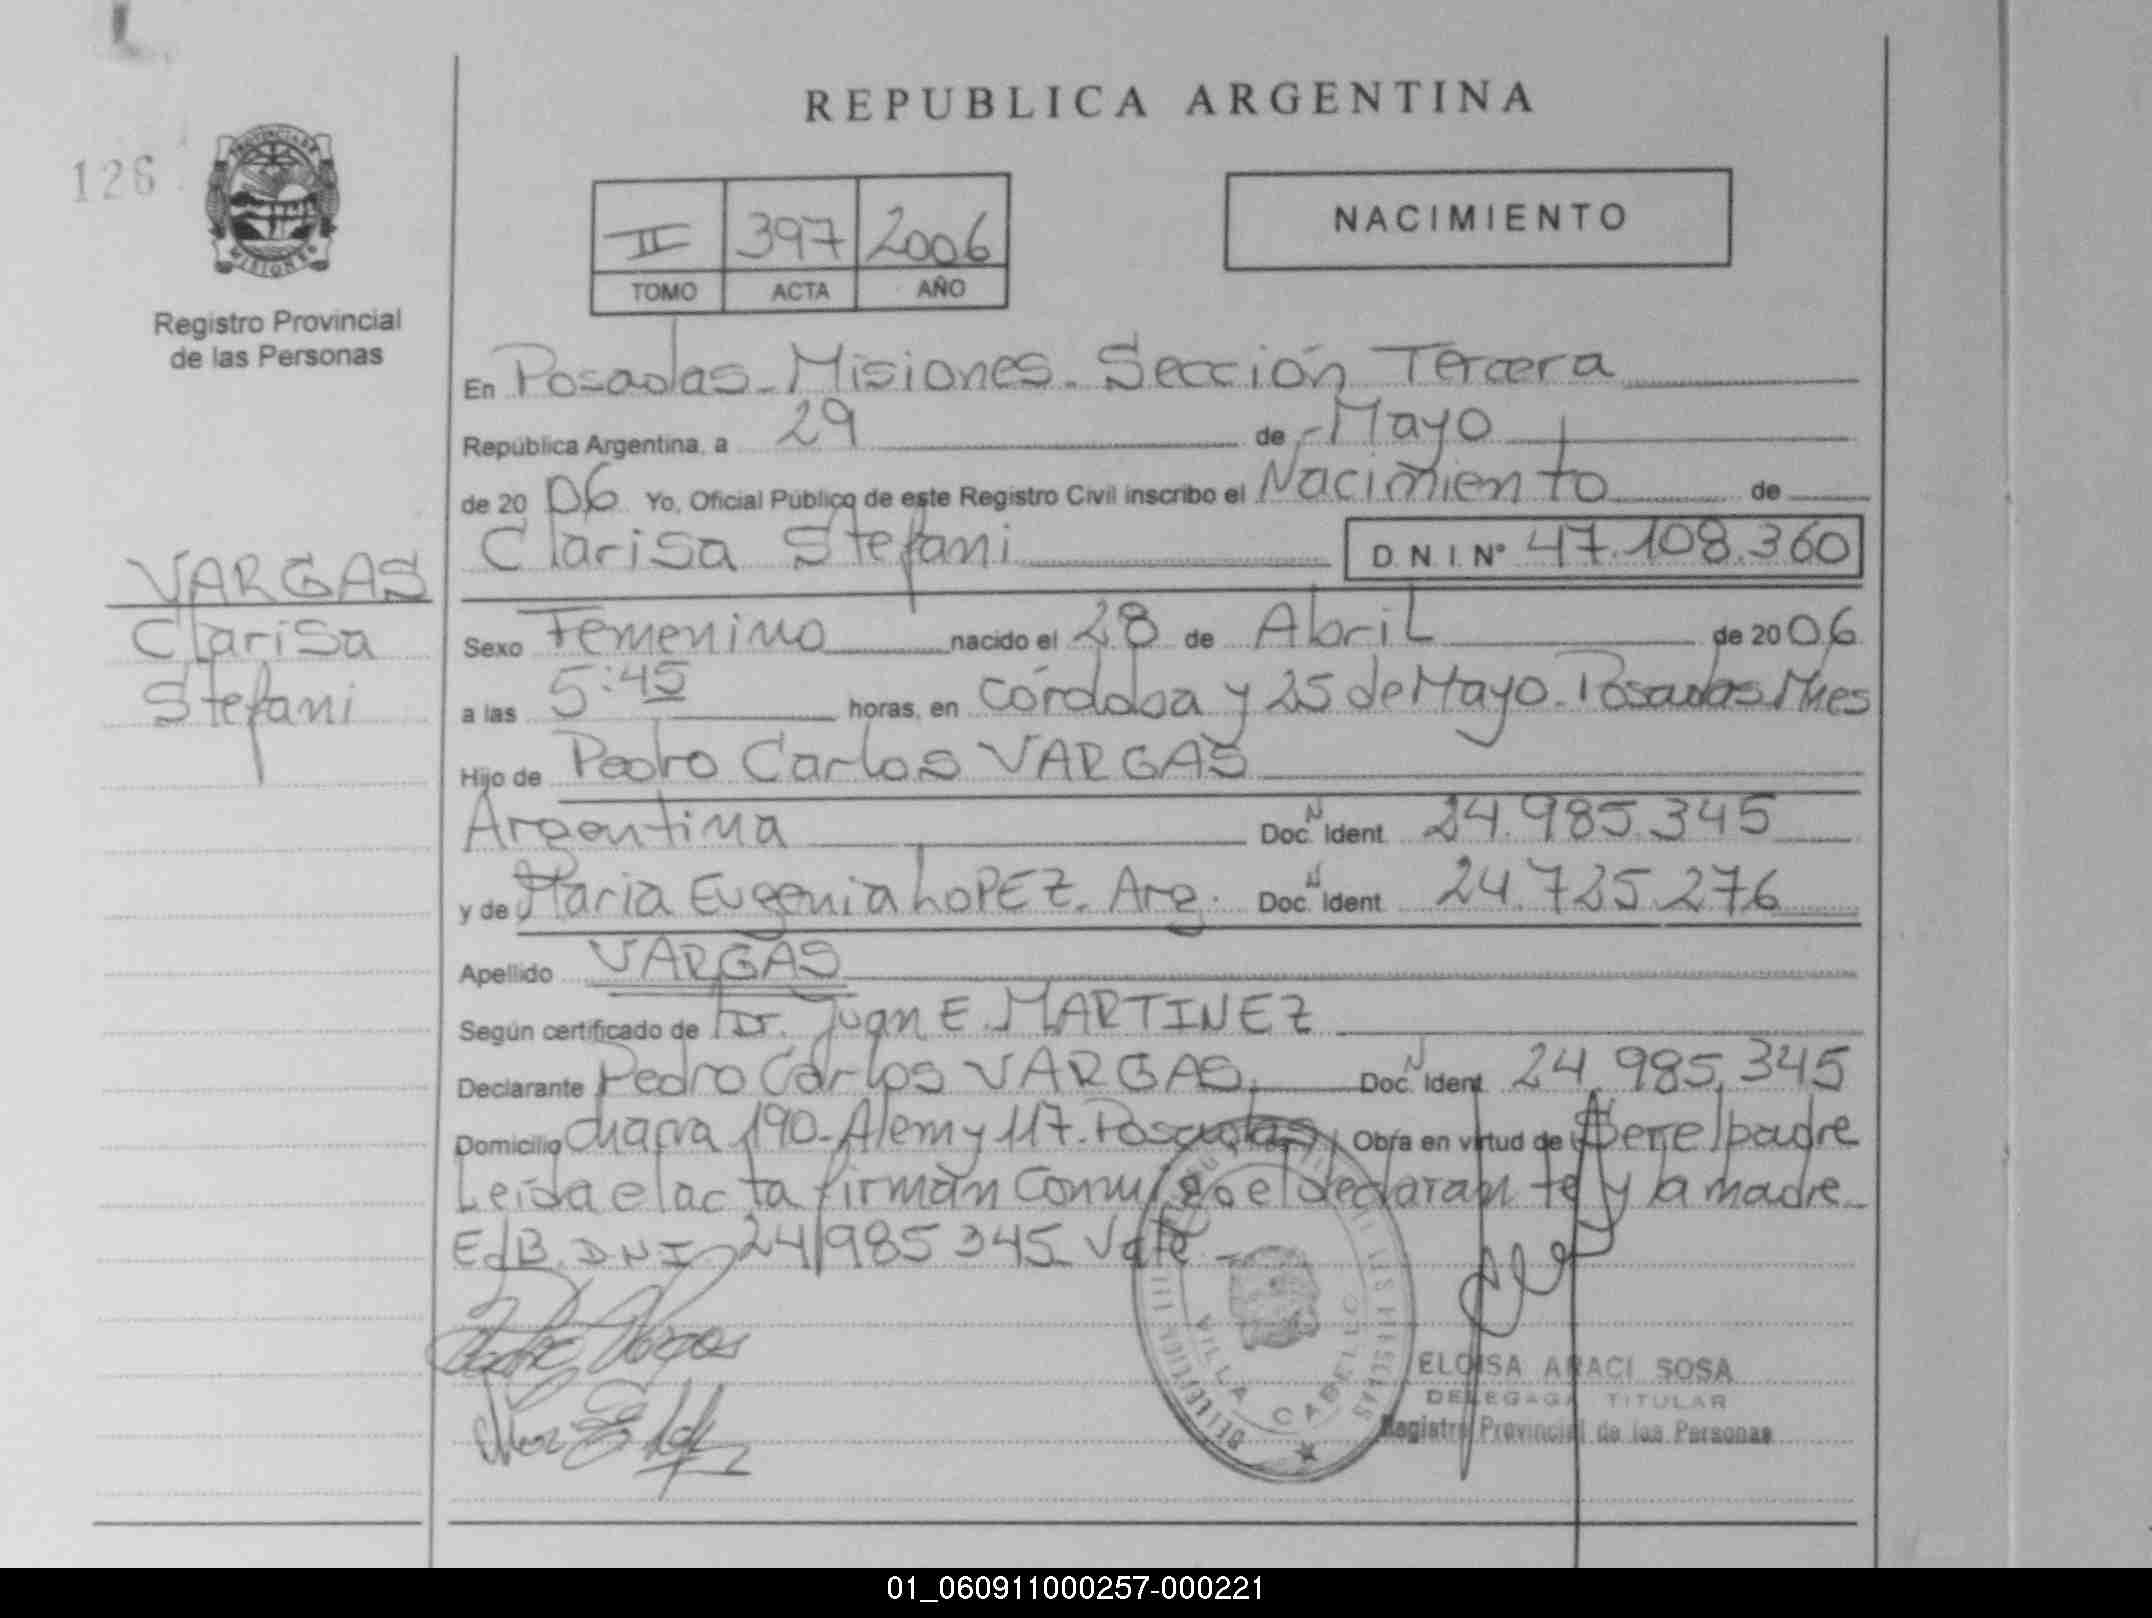 REPUBLICA ARGENTINA
126
PROVINCIA DE MISIONES
Registro Provincial
de las Personas
II 397 2006
TOMO ACTA AÑO
NACIMIENTO
En Posadas - Misiones - Sección Tercera
República Argentina, a 29 de Mayo
de 2006 Yo, Oficial Público de este Registro Civil inscribo el Nacimiento de
Clarisa Stefani D.N.I. Nº 47.108.360
VARGAS
Clarisa
Stefani
Sexo Femenino nacido el 28 de Abril de 2006
a las 5:45 horas, en Córdoba y 25 de Mayo - Posadas Mnes
Hijo de Pedro Carlos VARGAS
Argentina Doc. N Ident 24.985.345
y de Maria Eugenia LOPEZ. Arg. Doc. N Ident 24.725.276
Apellido VARGAS
Según certificado de Dr. Juan E. MARTINEZ
Declarante Pedro Carlos VARGAS, Doc. N Ident 24.985.345
Domicilio chacra 190 - Alem y 117 - Posadas Obra en virtud de Ser el padre
Leída el acta firman conmigo el declarante y la madre
EdB. D.N.I. 24/985 345 Vale
VILLA CABELLO
ELOISA ARACI SOSA
DELEGADA TITULAR
Registro Provincial de las Personas
01_060911000257-000221